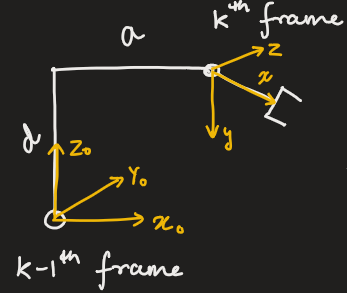 a
kᵗʰ frame
z
x
y
d
z₀
Y₀
x₀
k-1ᵗʰ frame